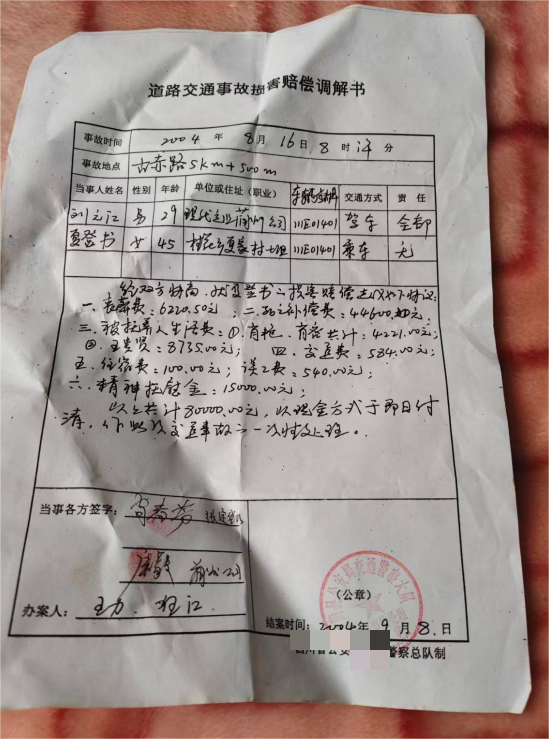 道路交通事故损害赔偿调解书
事故时间 2004年8月16日8时 分
事故地点 古赤路5km+500m
当事人姓名 性别 年龄 单位或住址(职业) 交通方式 责任
刘元江 男 29 川E01401 驾车 全部
夏登书 女 45 川E01401 乘车 无
经双方协商,就夏登书之损害赔偿达成如下协议:
一、丧葬费:6220.50元;二、死亡补偿费:44600.00元;
三、被抚养人生活费:① 肖艳、肖容共计:4221.00元;
② 王贵贤:8735.00元; 四、交通费:584.00元;
五、住宿费:100.00元; 误工费:540.00元;
六、精神抚慰金:15000.00元;
以上共计80000.00元,以现金方式于即日付
清,作此次交通事故之一次性处理。
当事各方签字:
(公章)
办案人:
结案时间:2004年9月8日
警察总队制